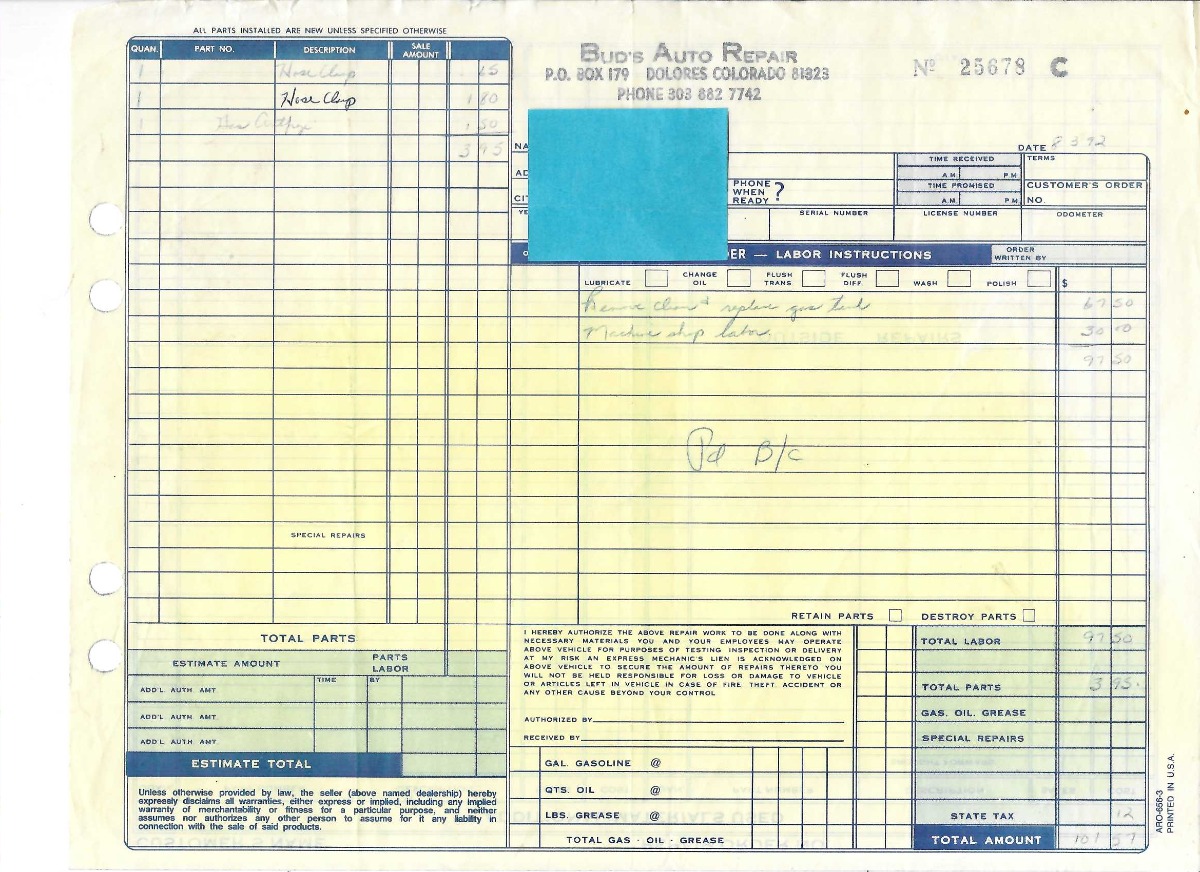 ALL PARTS INSTALLED ARE NEW UNLESS SPECIFIED OTHERWISE
QUAN. PART NO. DESCRIPTION SALE AMOUNT
1 Hose Clamp .65
1 Hose Clamp 1 80
1 1 50
3 95
SPECIAL REPAIRS
TOTAL PARTS
ESTIMATE AMOUNT PARTS
LABOR
TIME BY
ADD'L AUTH AMT
ADD'L AUTH AMT
ADD'L AUTH AMT
ESTIMATE TOTAL
Unless otherwise provided by law, the seller (above named dealership) hereby
expressly disclaims all warranties, either express or implied, including any implied
warranty of merchantability or fitness for a particular purpose, and neither
assumes nor authorizes any other person to assume for it any liability in
connection with the sale of said products.
BUD'S AUTO REPAIR
P.O. BOX 179 DOLORES COLORADO 81323
PHONE 303 882 7742
Nº 25678 C
DATE 8 3 92
NA
AD
CI
YE
PHONE WHEN READY ?
TIME RECEIVED
A.M. P.M.
TIME PROMISED
A.M. P.M.
TERMS
CUSTOMER'S ORDER
NO.
SERIAL NUMBER LICENSE NUMBER ODOMETER
ER — LABOR INSTRUCTIONS ORDER WRITTEN BY
LUBRICATE CHANGE OIL FLUSH TRANS FLUSH DIFF. WASH POLISH $
Remove Clean & replace gas tank 67 50
Machine shop labor 30 00
97 50
Pd B/c
RETAIN PARTS DESTROY PARTS
I HEREBY AUTHORIZE THE ABOVE REPAIR WORK TO BE DONE ALONG WITH
NECESSARY MATERIALS YOU AND YOUR EMPLOYEES MAY OPERATE
ABOVE VEHICLE FOR PURPOSES OF TESTING INSPECTION OR DELIVERY
AT MY RISK AN EXPRESS MECHANIC'S LIEN IS ACKNOWLEDGED ON
ABOVE VEHICLE TO SECURE THE AMOUNT OF REPAIRS THERETO YOU
WILL NOT BE HELD RESPONSIBLE FOR LOSS OR DAMAGE TO VEHICLE
OR ARTICLES LEFT IN VEHICLE IN CASE OF FIRE THEFT ACCIDENT OR
ANY OTHER CAUSE BEYOND YOUR CONTROL
AUTHORIZED BY
RECEIVED BY
GAL. GASOLINE @
QTS. OIL @
LBS. GREASE @
TOTAL GAS - OIL - GREASE
TOTAL LABOR 97 50
TOTAL PARTS 3 95
GAS. OIL. GREASE
SPECIAL REPAIRS
STATE TAX 12
TOTAL AMOUNT 101 57
ARO-666-3
PRINTED IN U.S.A.